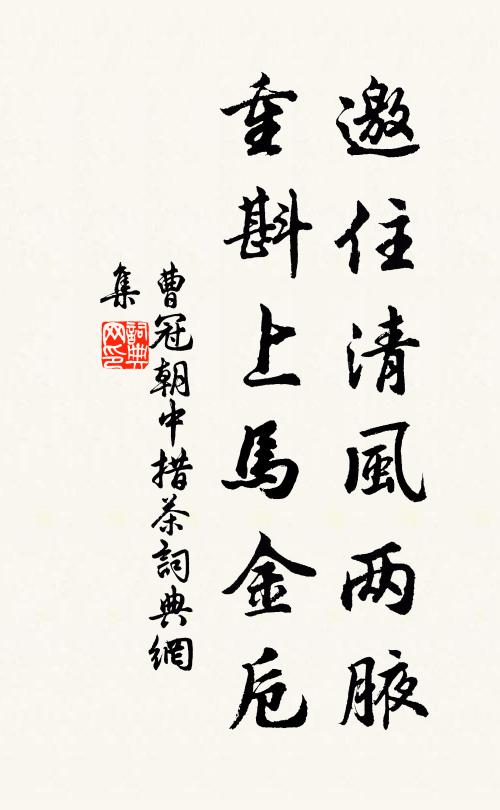 邀住清風两腋
重斟上馬金卮
曹冠朝中措茶詞典網
集
詞典網印